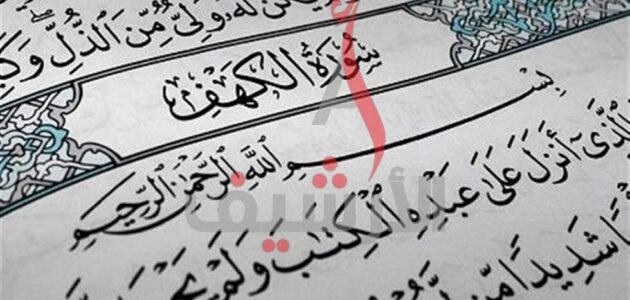 لَّهُۥ وَلِىٌّ مِّنَ ٱلذُّلِّ وَكَ
سُورَةُ الكَهْفِ
بِسْمِ ٱللَّهِ ٱلرَّحْمَٰنِ ٱلرَّحِيمِ
ٱلَّذِىٓ أَنزَلَ عَلَىٰ عَبْدِهِ ٱلْكِتَٰبَ وَلَمْ يَجْ
شَدِيدًا مِّن
الأرشيف